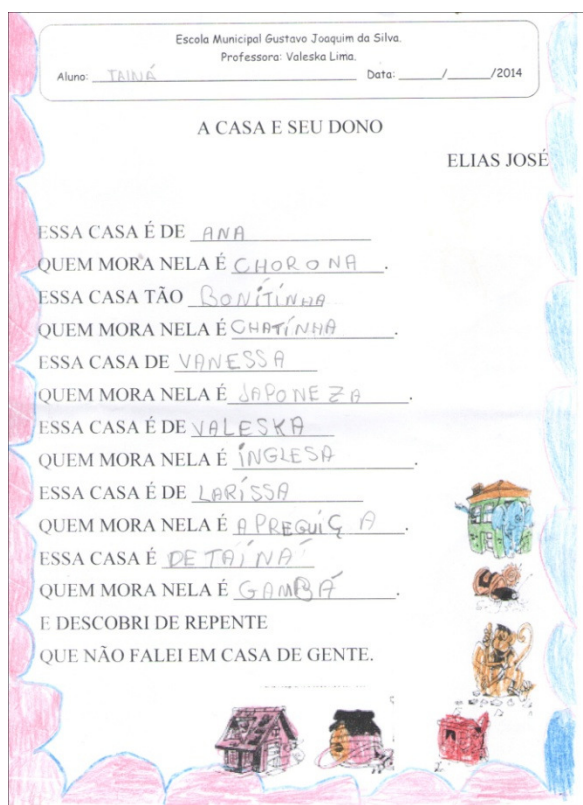 Escola Municipal Gustavo Joaquim da Silva.
Professora: Valeska Lima.
Aluno: TAINÁ Data: ______/______/2014
A CASA E SEU DONO
ELIAS JOSÉ
ESSA CASA É DE ANA
QUEM MORA NELA É CHORONA.
ESSA CASA TÃO BONITINHA
QUEM MORA NELA É CHATÍNHA.
ESSA CASA DE VANESSA
QUEM MORA NELA É JAPONEZA.
ESSA CASA É DE VALESKA
QUEM MORA NELA É ÍNGLESA.
ESSA CASA É DE LARÍSSA
QUEM MORA NELA É A PREGUIÇA.
ESSA CASA É DE TAÍNÁ
QUEM MORA NELA É GAMBÁ.
E DESCOBRI DE REPENTE
QUE NÃO FALEI EM CASA DE GENTE.